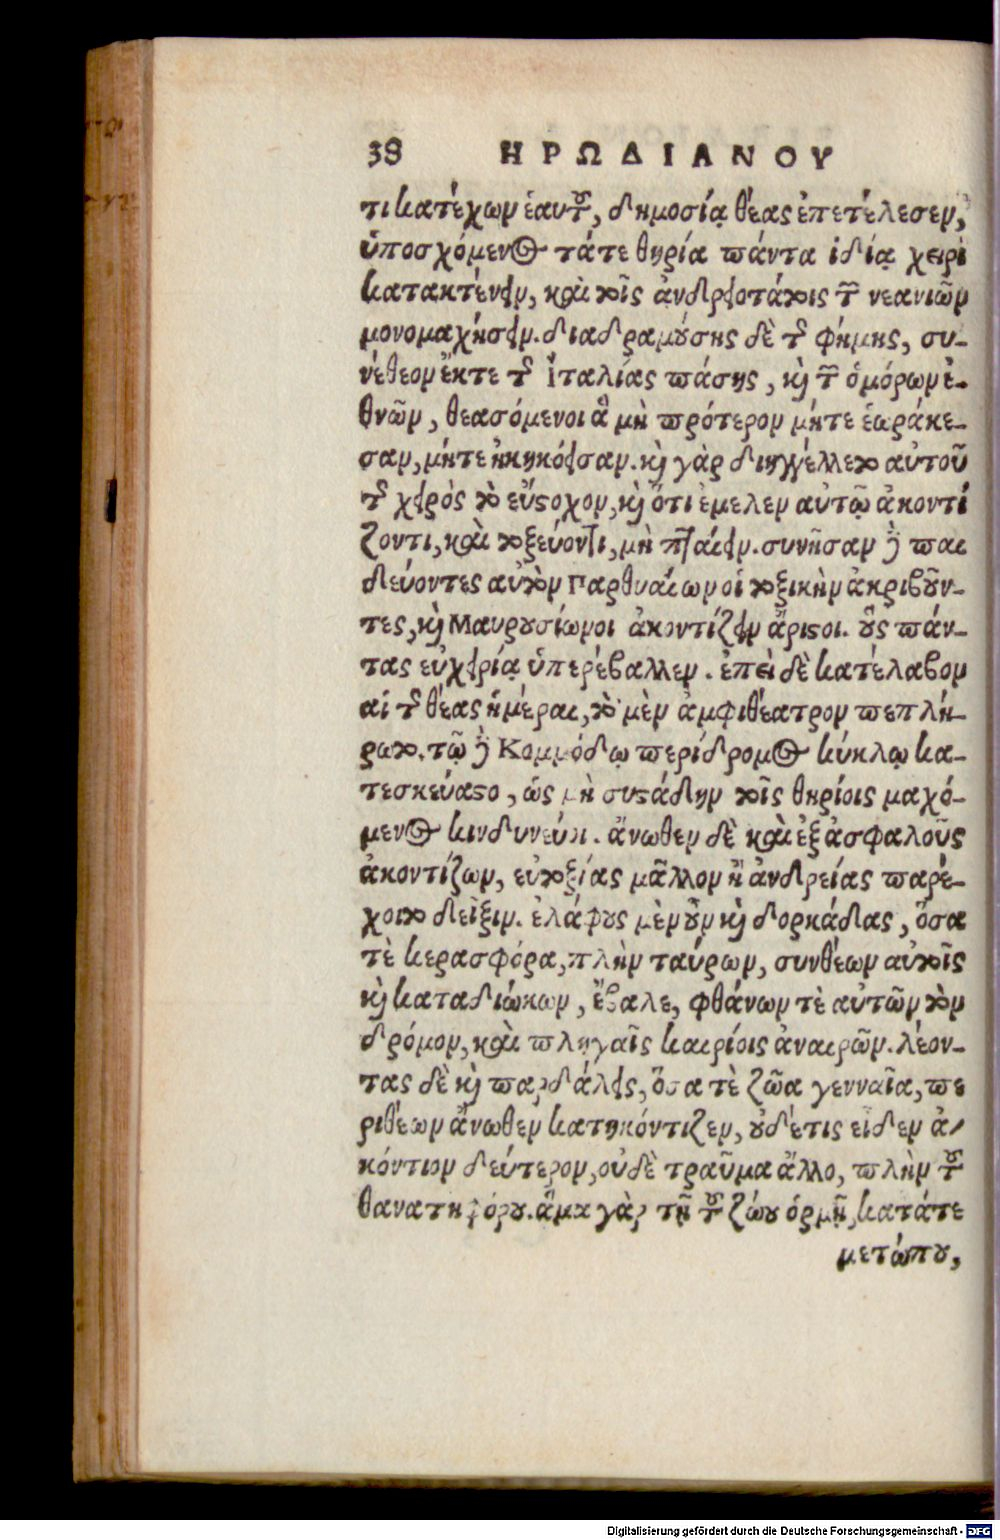 38 ΗΡΩΔΙΑΝΟΥ
τι κατέχων ἑαυτοῦ, δημοσίᾳ θέας ἐπετέλεσεν,
ὑποσχόμενος τάτε θηρία πάντα ἰδίᾳ χειρὶ
κατακτένειν, καὶ τοῖς ἀνδρειοτάτοις τῶν νεανιῶν
μονομαχήσειν. διαδραμούσης δὲ τῆς φήμης, συ-
νέθεον ἔκτε τῆς Ἰταλίας πάσης, καὶ τῶν ὁμόρων ἐ-
θνῶν, θεασόμενοι ἃ μὴ πρότερον μήτε ἑωράκε-
σαν, μήτε ἠκηκόεισαν. καὶ γὰρ διηγγέλλετο αὐτοῦ
τῆς χειρὸς τὸ εὔστοχον, καὶ ὅτι ἔμελεν αὐτῷ ἀκοντί
ζοντι, καὶ τοξεύοντι, μὴ πταίειν. συνῆσαν δὲ παι
δεύοντες αὐτὸν Παρθυαίων οἱ τοξικὴν ἀκριβοῦν-
τες, καὶ Μαυρουσίων οἱ ἀκοντίζειν ἄριστοι. οὓς πάν-
τας εὐχειρίᾳ ὑπερέβαλλεν. ἐπεὶ δὲ κατέλαβον
αἱ τῆς θέας ἡμέραι, τὸ μὲν ἀμφιθέατρον πεπλή-
ρωτο. τῷ δὲ Κομμόδῳ περίδρομος κύκλῳ κα-
τεσκεύαστο, ὡς μὴ συστάδην τοῖς θηρίοις μαχό-
μενος κινδυνεύοι. ἄνωθεν δὲ καὶ ἐξ ἀσφαλοῦς
ἀκοντίζων, εὐτοξίας μᾶλλον ἢ ἀνδρείας παρέ-
χοιτο δεῖξιν. ἐλάφους μὲν οὖν καὶ δορκάδας, ὅσα
τὲ κερασφόρα, πλὴν ταύρων, συνθέων αὐτοῖς
καὶ καταδιώκων, ἔβαλε, φθάνων τὲ αὐτῶν τὸν
δρόμον, καὶ πληγαῖς καιρίοις ἀναιρῶν. λέον-
τας δὲ καὶ παρδάλεις, ὅσα τὲ ζῶα γενναῖα, πε
ριθέων ἄνωθεν κατηκόντιζεν, οὐδέ τις εἶδεν ἀ-
κόντιον δεύτερον, οὐδὲ τραῦμα ἄλλο, πλὴν τοῦ
θανατηφόρου. ἅμα γὰρ τῇ τοῦ ζώου ὁρμῇ, κατάτε
μετώπου,
Digitalisierung gefördert durch die Deutsche Forschungsgemeinschaft - DFG